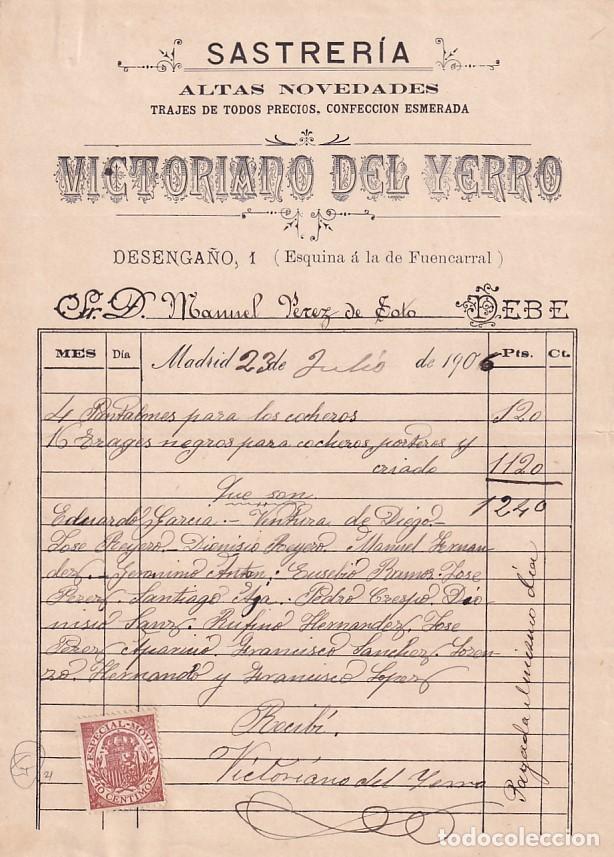 SASTRERÍA
ALTAS NOVEDADES
TRAJES DE TODOS PRECIOS. CONFECCION ESMERADA
VICTORIANO DEL YERRO
DESENGAÑO, 1 (Esquina á la de Fuencarral)
Sr. D. Manuel Perez de Soto DEBE
MES Día Madrid 23 de Julio de 1906 Pts. Ct.
4 Pantalones para los cocheros 120
16 Trages negros para cocheros, porteros y
criado 1120
Que son 1240
Eduardo Garcia - Ventura de Diego -
Jose Reyero - Dionisio Reyero. Manuel Hernan-
dez - Geronimo Anton: Eusebio Ramos. Jose
Perez Santiago Pedro Crespo. Dio
nisio Sanz Rufino Hernandez Jose
Perez Aparicio Francisco Sanchez. Loren-
zo. Hernando y Francisco Lopez
Recibí.
Victoriano del Yerro
Pagada el mismo día
ESPECIAL-MÓVIL
10 CENTIMOS
21
todocoleccion